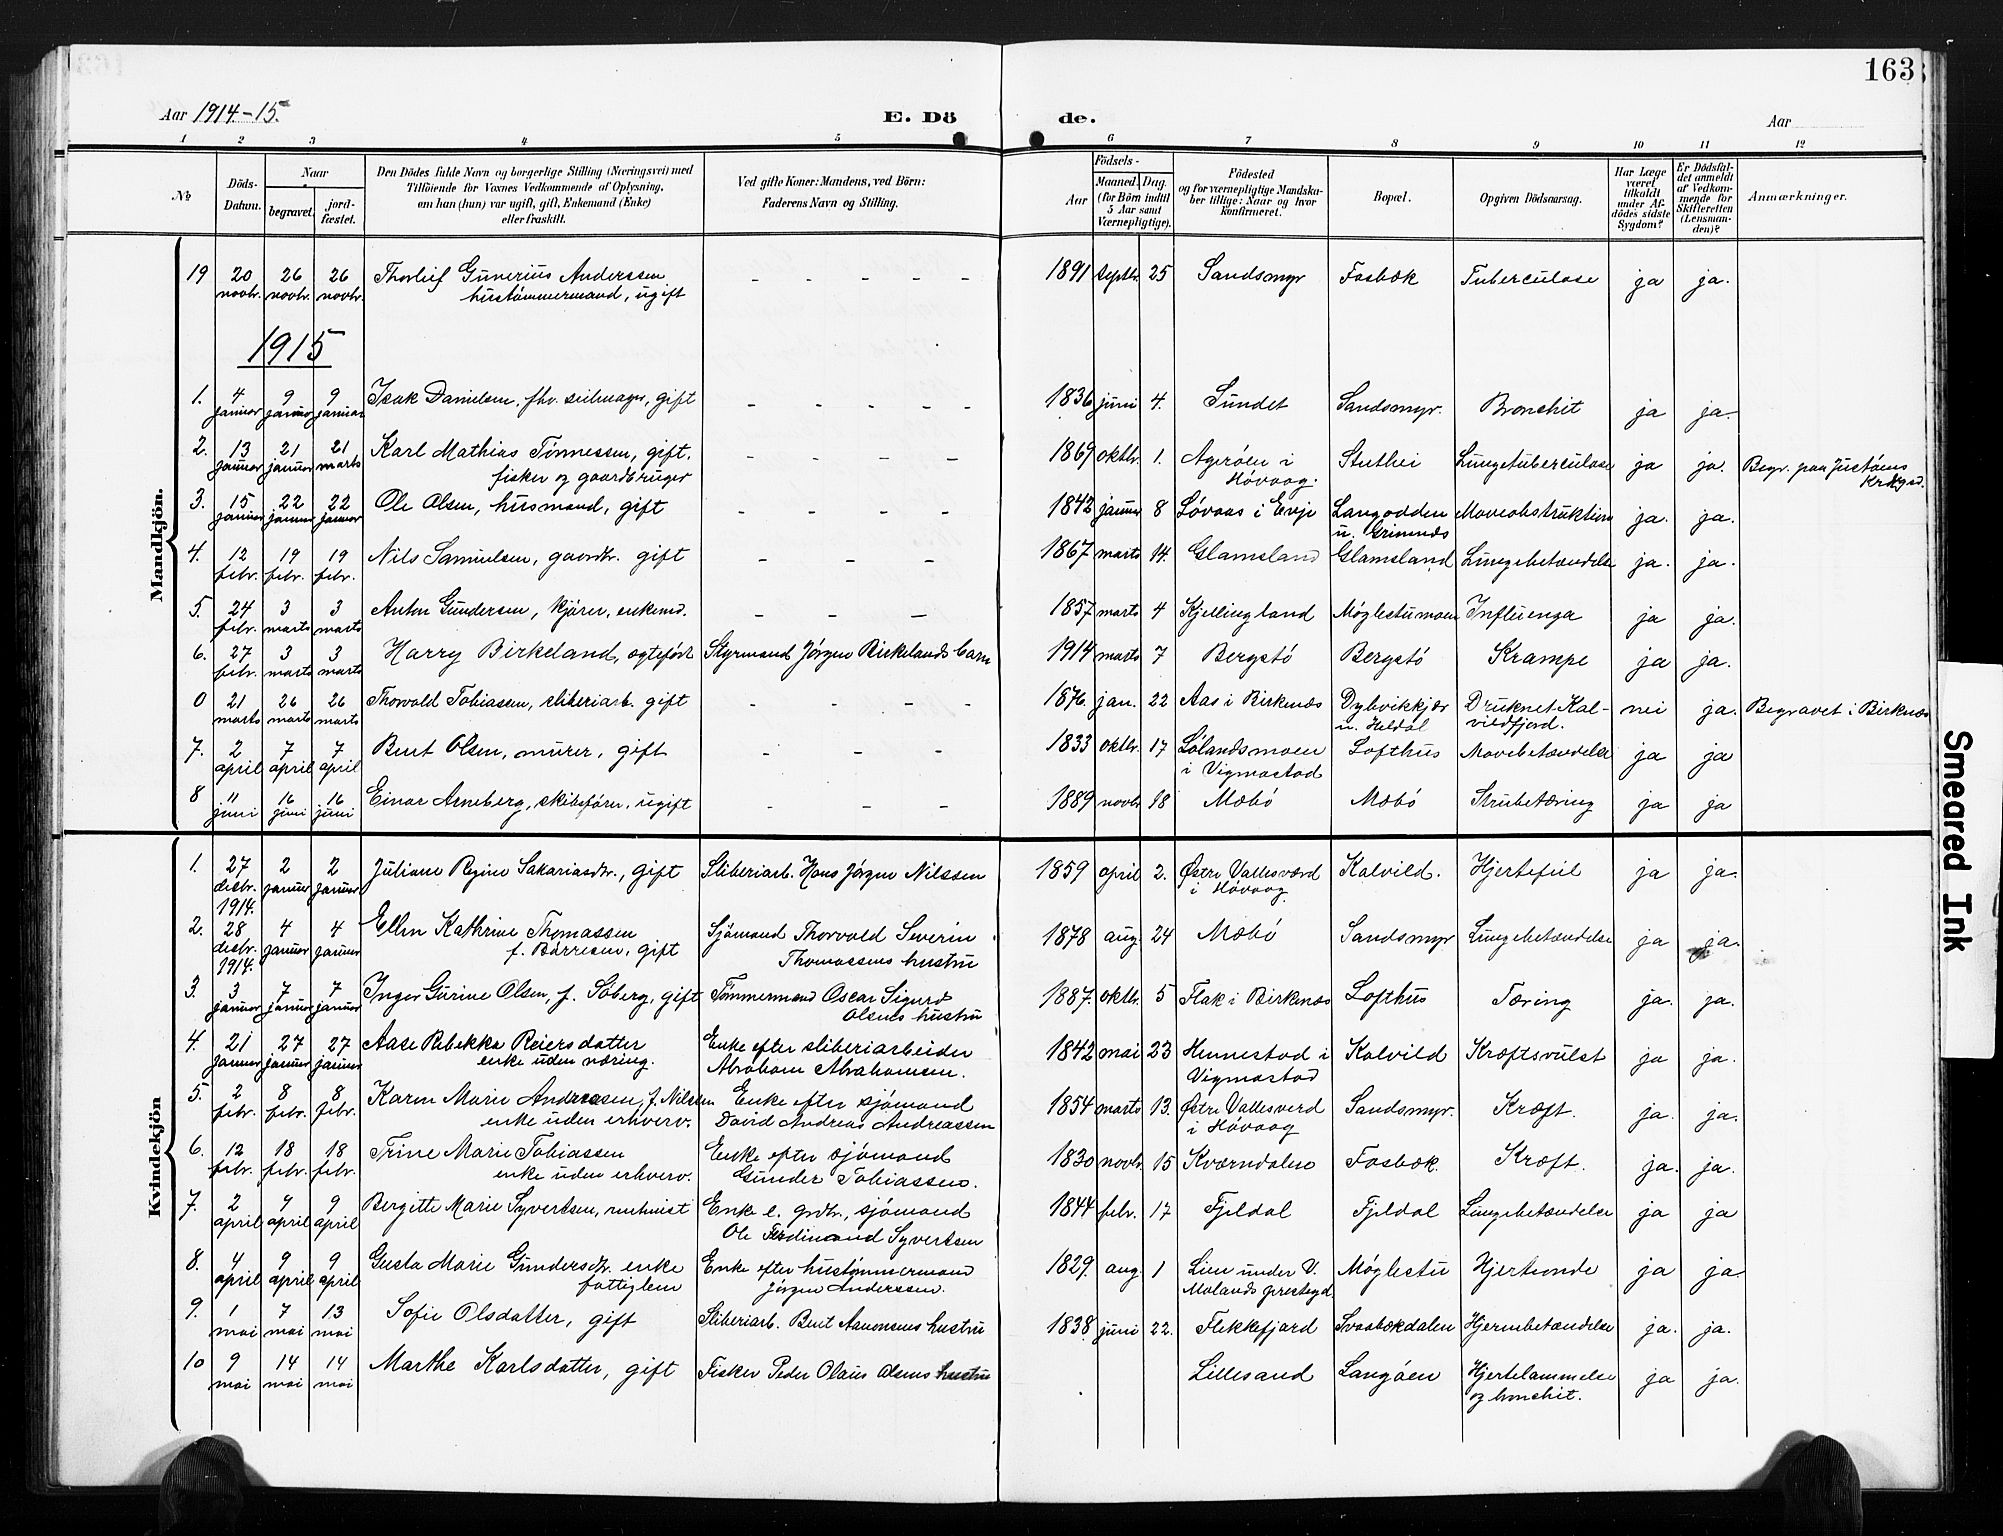 163
Aar 1914-15.
E. Dö de.
Aar
1 2 3 4 5 6 7 8 9 10 11 12
No
Döds-Datum.
Naar
begravet.
jord-fæstet.
Den Dödes fulde Navn og borgerlige Stilling (Næringsvei) med
Tilföiende for Voxnes Vedkommende af Oplysning,
om han (hun) var ugift, gift, Enkemand (Enke)
eller fraskilt.
Ved gifte Koner: Mandens, ved Börn:
Faderens Navn og Stilling.
Födsels-
Aar
Maaned. Dag.
(for Börn indtil
5 Aar samt
Værnepligtige).
Födested
og for værnepligtige Mandska-
ber tillige: Naar og hvor
konfirmeret.
Bopæl.
Opgiven Dödsaarsag.
Har Læge
været
tilkaldt
under Af-
dödes sidste
Sygdom?
Er Dödsfal-
det anmeldt
af Vedkom-
mende for
Skifteretten
(Lensman-
den)?
Anmærkninger.
Mandkjön.
19 20 novbr. 26 novbr. 26 novbr. Thorleif Gunerius Anderssen - - - - - 1891 septbr. 25 Sandsmyr Fosbæk Tuberculose ja ja.
hustømmermand, ugift
1915
1. 4 januar 9 januar 9 januar Isak Danielsen, fhv. seilmager, gift - - - - 1836 juni 4. Sundet Sandsmyr. Bronchit ja ja.
2. 13 januar 21 januar 21 marts Karl Mathias Tønnessen, gift, - - - - 1869 oktbr. 1. Agerøen i Stuthei Lungetuberculose ja ja. Begr. paa Justøens
fisker og gaardbruger Høvaag. Krkgd.
3. 15 januar 22 januar 22 januar Ole Olsen, husmand, gift - - - - 1842 januar 8 Løvaas i Evje Langodden Maveobstruktion ja. ja.
u. Grimnes
4. 12 febr. 19 febr. 19 febr. Nils Samuelsen, gaardbr. gift - - - - 1867 marts 14. Glamsland Glamsland Lungebetændelse ja. ja.
5. 24 febr. 3 marts 3 marts Anton Gundersen, kjører, enkemd. - - - 1857 marts 4 Kjellingland Møglestumoen Influenza ja ja.
6. 27 febr. 3 marts 3 marts Harry Birkeland, ægtefødt Styrmand Jørgen Birkelands barn 1914 marts 7 Bergstø Bergstø Krampe ja ja.
0 21 marts 26 marts 26 marts Thorvold Tobiassen, sliberiarb. gift - - - - 1876. jan. 22 Aas i Birkenæs Dybvikkjær Druknet Kal- nei ja. Begravet i Birknæs
u. Heldal vildfjord.
7. 2 april 7 april 7 april Bent Olsen, murer, gift - - - 1833 oktbr. 17 Lølandsmoen Lofthus Mavebetændelse ja ja
i Vigmostad
8 11 juni 16 juni 16 juni Einar Arneberg, skibsfører, ugift - - - 1889 novbr. 18 Mæbø Mæbø Strubetæring ja ja
Kvindekjön
1. 27 desbr. 1914. 2 januar 2 januar Juliane Regine Sakariasdtr., gift Sliberiarb. Hans Jørgen Nilssen 1859 april 2. Østre Vallesværd Kalvild. Hjertefeil ja ja.
i Høvaag.
2. 28 desbr. 1914. 4 januar 4 januar Ellen Kathrine Thomassen Sjømand Thorvald Severin 1878 aug. 24 Mæbø Sandsmyr Lungebetændelse ja ja.
f. Børresen, gift Thomassens hustru
3. 3 januar 7 januar 7 januar Inger Gurine Olsen, f. Søberg, gift Tømmermand Oscar Sigurd 1887. oktbr. 5 Flak i Birkenæs Lofthus Tæring ja. ja.
Olsens hustru
4. 21 januar 27 januar 27 januar Aase Rebekka Reiersdatter Enke efter sliberiarbeider 1842 mai 23 Hennestad i Kalvild Kræftsvulst ja ja.
enke uden næring. Abraham Abrahamsen. Vigmostad
5. 2 febr. 8 febr. 8 febr. Karen Marie Andreassen, f. Nilssen Enke efter sjømand 1854 marts 13. Østre Vallesverd Sandsmyr. Kræft. ja. ja.
enke uden erhverv. David Andreas Andreassen i Høvaag
6. 12 febr. 18 febr. 18 febr. Trine Marie Tobiassen Enke efter sjømand 1830 novbr. 15 Kværndalen Fosbæk. Kræft. ja. ja.
enke uden erhverv. Gunder Tobiassen.
7. 2 april 9 april 9 april Bergitte Marie Syvertsen, Enke e. grdbr., sjømand 1844 febr. 17 Fjeldal Fjeldal Lungebetændelse ja ja
Ole Ferdinand Syvertsen
8. 4 april 9 april 9 april Gusta Marie Gundersdtr. enke Enke efter hustømmermand 1829. aug. 1 Lien under V. Møglestu Hjerteonde ja ja.
fattiglem Jørgen Anderssen. Molands prestegd.
9. 1 mai 7 mai 13 mai Sofie Olsdatter, gift Sliberiarb. Bent Aanonsens hustru 1838 juni 22. Flekkefjord Svaabækdalen Hjernebetændelse ja. ja.
10 9 mai 14 mai 14 mai Marthe Karlsdatter, gift Fisker Peder Olaus Olsens hustru Lillesand Langøen Hjertelammelse ja ja.
og bronchit.
Smeared Ink